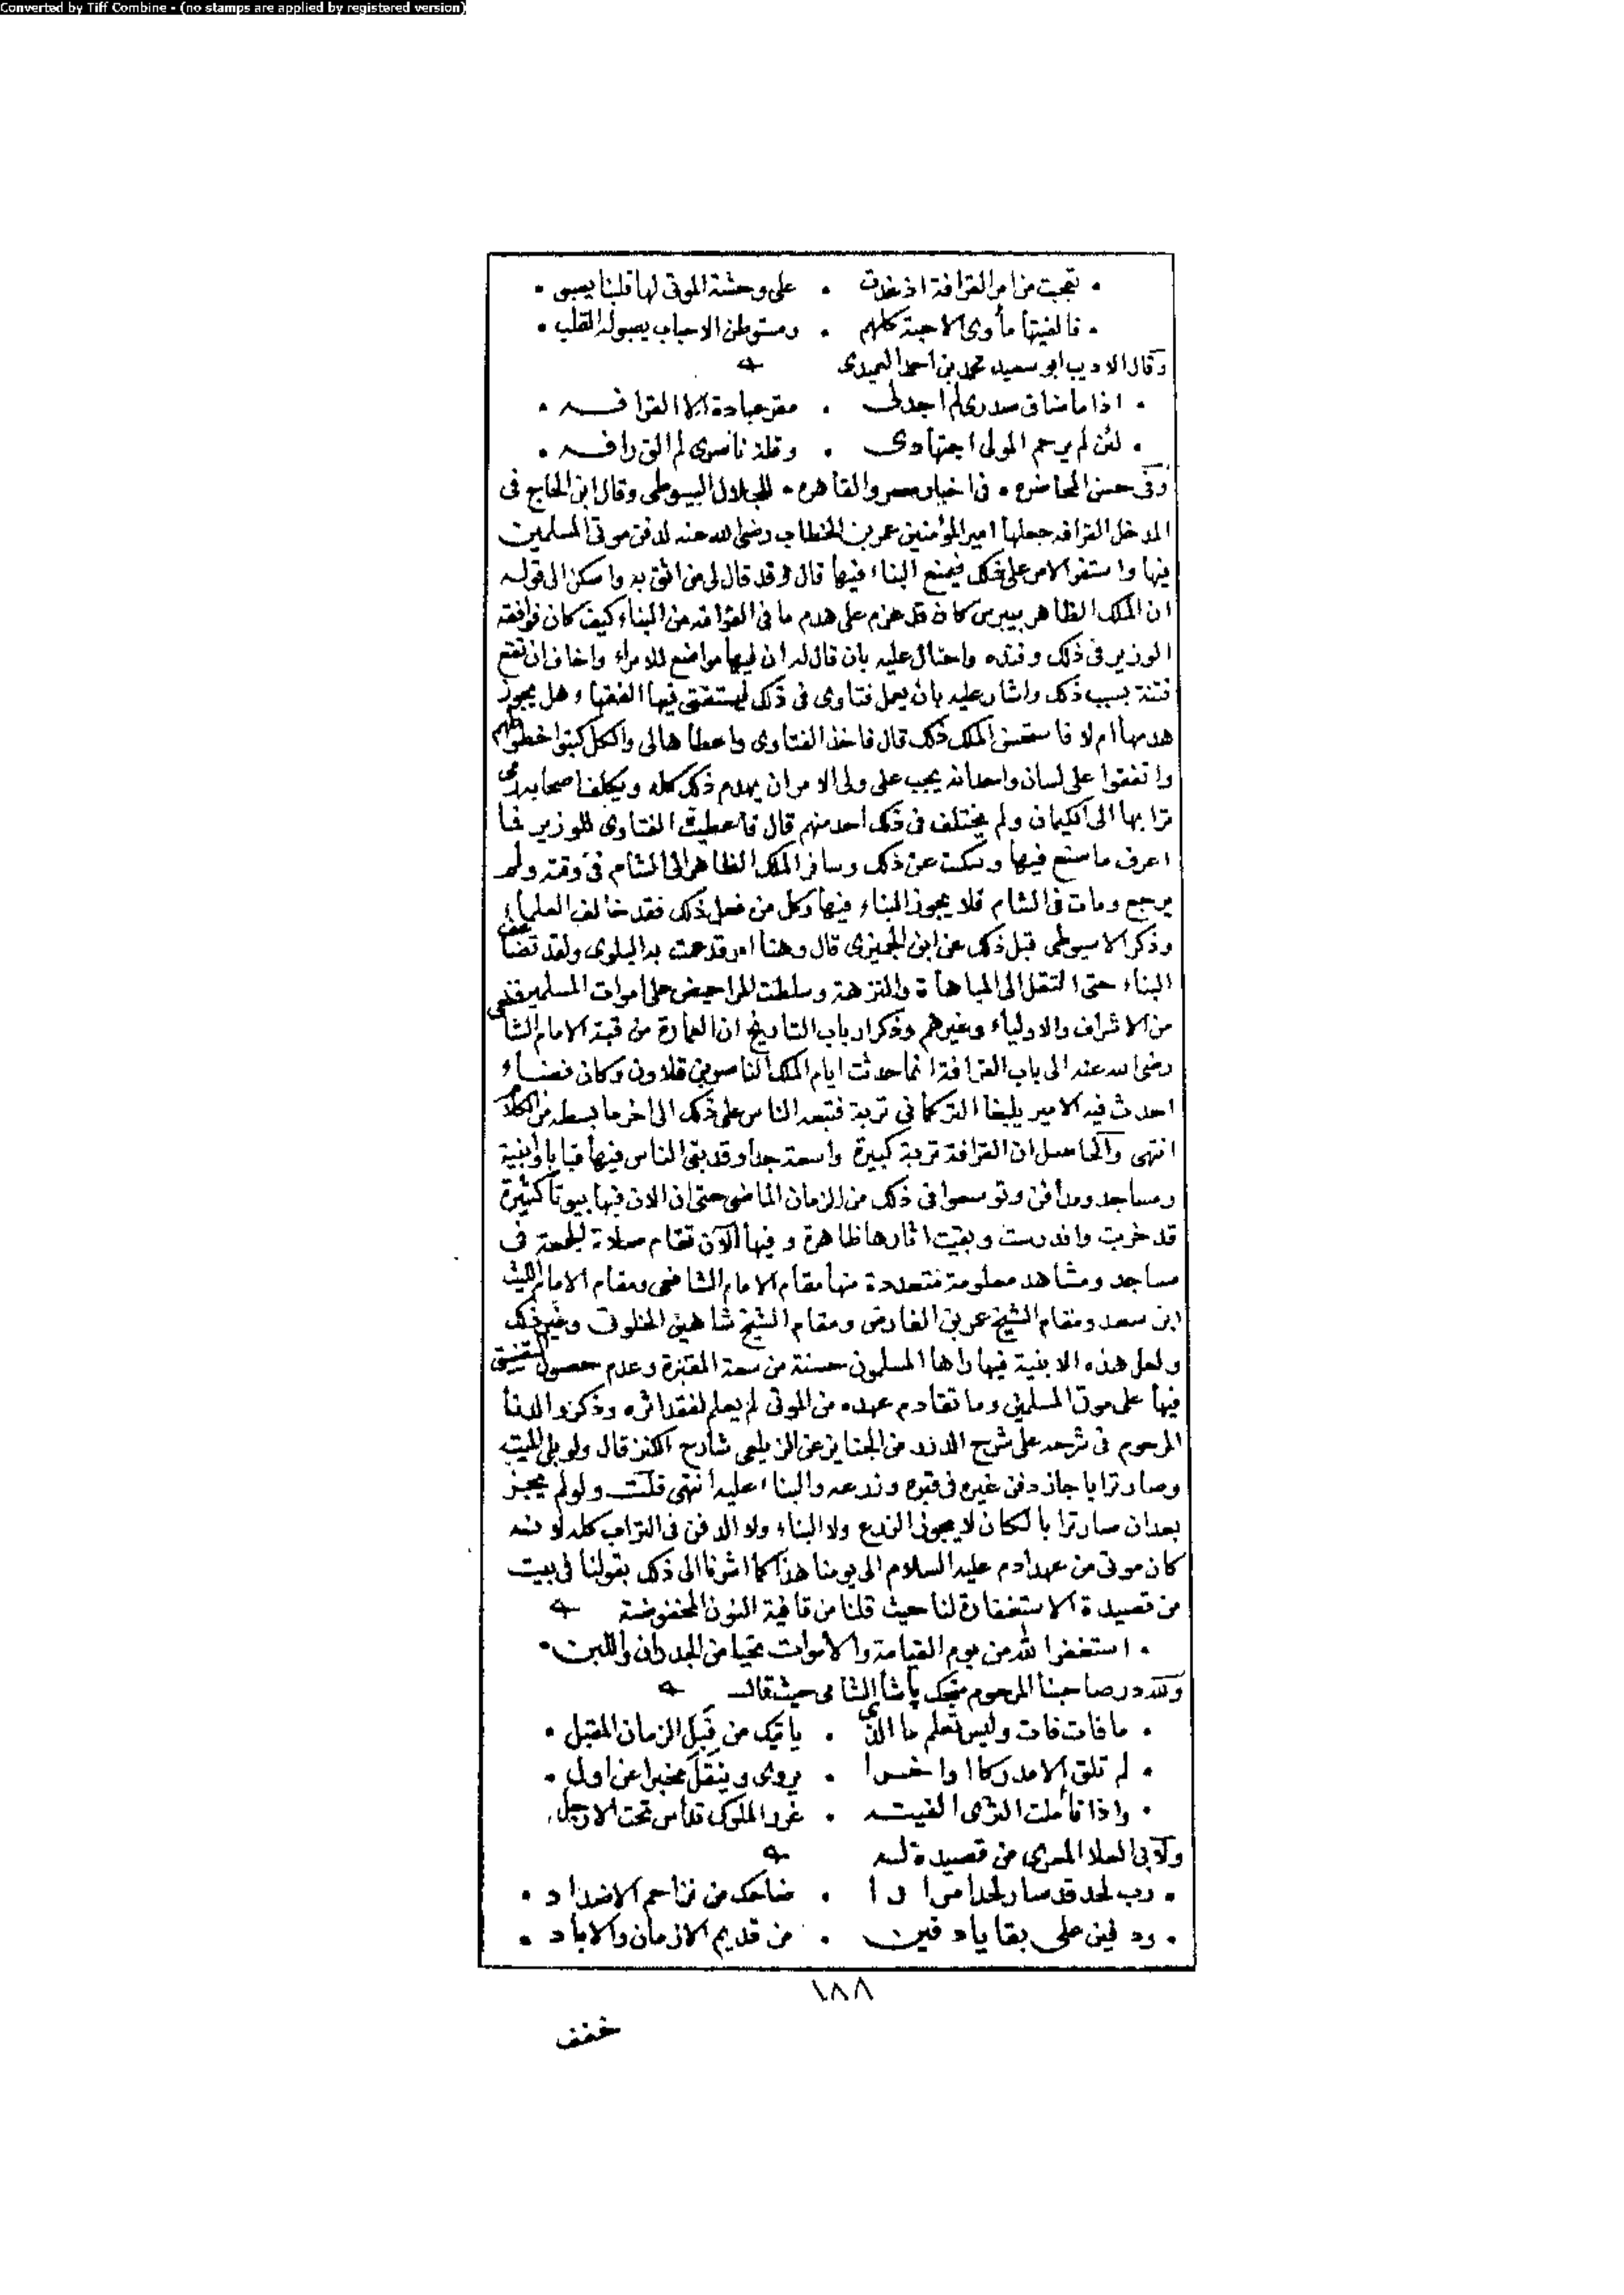 Converted by Tiff Combine - (no stamps are applied by registered version)
• تعجبت من امر القرافة اذ غدت • على وحشة الموتى لها قلبنا يصبو •
• فالفيتها مأوى الاحبة كلهم • ومستوطن الاحباب يصبو له القلب •
وقال الاديب ابو سعيد محمد بن احمد العميدى
• اذا ما ضاق صدرى لم اجد لى • مقر عبادة الا القرافـه •
• لئن لم يرحم المولى اجتهادى • وقلة ناصرى لم الق رافـه •
وفى حسن المحاضره • فى اخبار مصر والقاهره • للجلال السيوطى وقال ابن الحاج فى
المدخل القرافه جعلها امير المؤمنين عمر بن الخطاب رضى الله عنه لدفن موتى المسلمين
فيها واستقر الامر على ذلك فيمنع البناء فيها قال وقد قال لى من اثق به واسكن الى قوله
ان الملك الظاهر بيبرس كان قد عزم على هدم ما فى القرافه من البناء كيف كان فوافقه
الوزير فى ذلك وفنده واحتال عليه بان قال له ان فيها مواضع للامراء واخاف ان تقع
فتنة بسبب ذلك واشار عليه بان يعمل فتاوى فى ذلك ليستفتى فيها الفقهاء هل يجوز
هدمها ام لا فاستحسن الملك ذلك قال فاخذ الفتاوى واعطاها لى والكل كتبوا خطوطهم
واتفقوا على لسان واحد انه يجب على ولى الامر ان يهدم ذلك كله ويكلف اصحابه رمى
ترابها الى الكيمان ولم يختلف فى ذلك احد منهم قال فاعطيت الفتاوى للوزير فما
اعرف ما صنع فيها وسكت عن ذلك وسافر الملك الظاهر الى الشام فى وقته ولم
يرجع ومات فى الشام فلا يجوز البناء فيها وكل من فعل ذلك فقد خالف العلماء
وذكر الاسيوطى قبل ذلك عن ابن الجميزى قال وهنا امر قد عمت به البلوى ولقد تضاعف
البناء حتى انتقل الى المباهاة والنزهة وسلطت المراحيض على اموات المسلمين
من الاشراف والاولياء وغيرهم وذكر ارباب التاريخ ان العمارة من قبة الامام الشافعى
رضى الله عنه الى باب القرافة انما حدثت ايام الملك الناصر بن قلاون وكان فضاء
احدث فيه الامير يلبغا التركمانى تربة فتبعه الناس على ذلك الى اخر ما بسطه من الكلام
انتهى والحاصل ان القرافة تربة كبيرة واسعة جدا وقد بنى الناس فيها قبابا وابنية
ومساجد ومدافن وتوسعوا فى ذلك من الزمان الماضى حتى ان الان فيها بيوتا كثيرة
قد خربت واندرست وبقيت اثارها ظاهرة وفيها الآن تقام صلاة الجمعة فى
مساجد ومشاهد معلومة متعددة منها مقام الامام الشافعى ومقام الامام الليث
ابن سعد ومقام الشيخ عمر بن الفارض ومقام الشيخ شاهين الخلوتى وغير ذلك
ولعل هذه الابنية فيها راها المسلمون حسنة من سعة المقبرة وعدم حصول التضييق
فيها على موتى المسلمين وما تقادم عهده من الموتى لم يعلم لفقد اثره وذكر والدنا
المرحوم فى شرحه على شرح الدرر من الجنايز عن الزيلعى شارح الكنز قال ولو بلى الميت
وصار ترابا جاز دفن غيره فى قبره وزرعه والبناء عليه انتهى قلت ولو لم يجز
بعد ان صار ترابا لكان لا يجوز الزرع ولا البناء ولا الدفن فى التراب كله لانه
كان موتى من عهد ادم عليه السلام الى يومنا هذا كما اشرنا الى ذلك بقولنا فى بيت
من قصيدة الاستغفارة لنا حيث قلنا من قافية النون المخفوضة
• استغفر الله من يوم القيامة والاموات تحيا من الجدران واللبن •
ولله در صاحبنا المرحوم منجك باشا الشامى حيث قال
• ما فات فات وليس تعلم ما الذى • ياتيك من قبل الزمان المقبل •
• لم تلق الا مدركا او اخرا • يروى وينقل مخبرا عن اول •
• واذا تأملت الثرى الفيته • غرر الملوك تداس تحت الارجل •
ولابى العلا المعرى من قصيدة له
• رب لحد قد صار لحدا مرارا • ضاحك من تزاحم الاضداد •
• ودفين على بقايا دفين • من قديم الازمان والاباد •
١٨٨
خفف